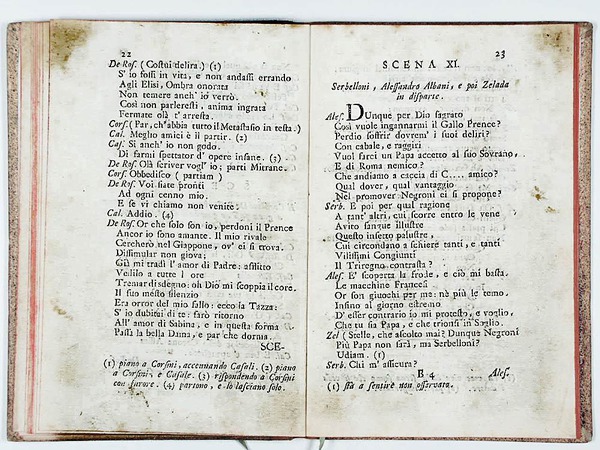 22
De Ros. (Costui delira.) (1)
S' io fossi in vita, e non andassi errando
Agli Elisi, Ombra onorata
Non temere anch' io verrò.
Così non parleresti, anima ingrata
Fermate olà t' arresta.
Cors. (Par, ch'abbia tutto il Metastasio in testa.)
Cal. Meglio amici è il partir. (2)
Caf. Si anch' io non godo.
Di farmi spettator d' opere insane. (3)
De Ros. Olà scriver vogl' io; parti Mitrane.
Cors. Obbedisco (partiam)
De Ros. Voi siate pronti
Ad ogni cenno mio.
E se vi chiamo non venite.
Cal. Addio. (4)
De Ros. Or che solo son io, perdoni il Prence
Ancor io sono amante. Il mio rivale
Cercherò nel Giappone, ov' ei si trova.
Dissimular non giova;
Già mi tradì l' amor di Padre: afflitto
Vedilo a tutte l ore
Tremar di sdegno: oh Dio mi scoppia il core.
Il suo mesto silenzio
Era orror del mio fallo: ecco la Tazza:
S' io dubitai di te: farò ritorno
All' amor di Sabina, e in questa forma
Passa la bella Dama, e par che dorma.
SCE-
(1) piano a Corsini, accennando Casali. (2) piano
a Corsini, e Casale. (3) rispondendo a Corsini
con furore. (4) partono, e lo lasciano solo.
23
SCENA XI.
Serbelloni, Alessandro Albani, e poi Zelada
in disparte.
Ales. DUnque per Dio sagrato
Così vuole ingannarmi il Gallo Prence?
Perdio soffrir dovrem' i suoi deliri?
Con cabale, e raggiri
Vuol farci un Papa accetto al suo Sovrano,
E di Roma nemico?
Che andiamo a caccia di C.... amico?
Qual dover, qual vantaggio
Nel promover Negroni ei si propone?
Serb. E poi per qual ragione
A tant' altri, cui scorre entro le vene
Avito sangue illustre
Questo insetto palustre,
Cui circondano a schiere tanti, e tanti
Vilissimi Congiunti
Il Triregno contrasta?
Ales. E' scoperta la frode, e ciò mi basta.
Le macchine Francesi
Or son giuochi per me: nè più le temo.
Insino al giorno estremo
D' esser contrario io mi protesto, e voglio,
Che tu sia Papa, e che trionfi in Soglio.
Zel (Stelle, che ascolto mai? Dunque Negroni
Più Papa non sarà, ma Serbelloni?
Udiam. (1)
Serb. Chi m' assicura?
B 4
Ales.
(1) stà a sentire non osservata.